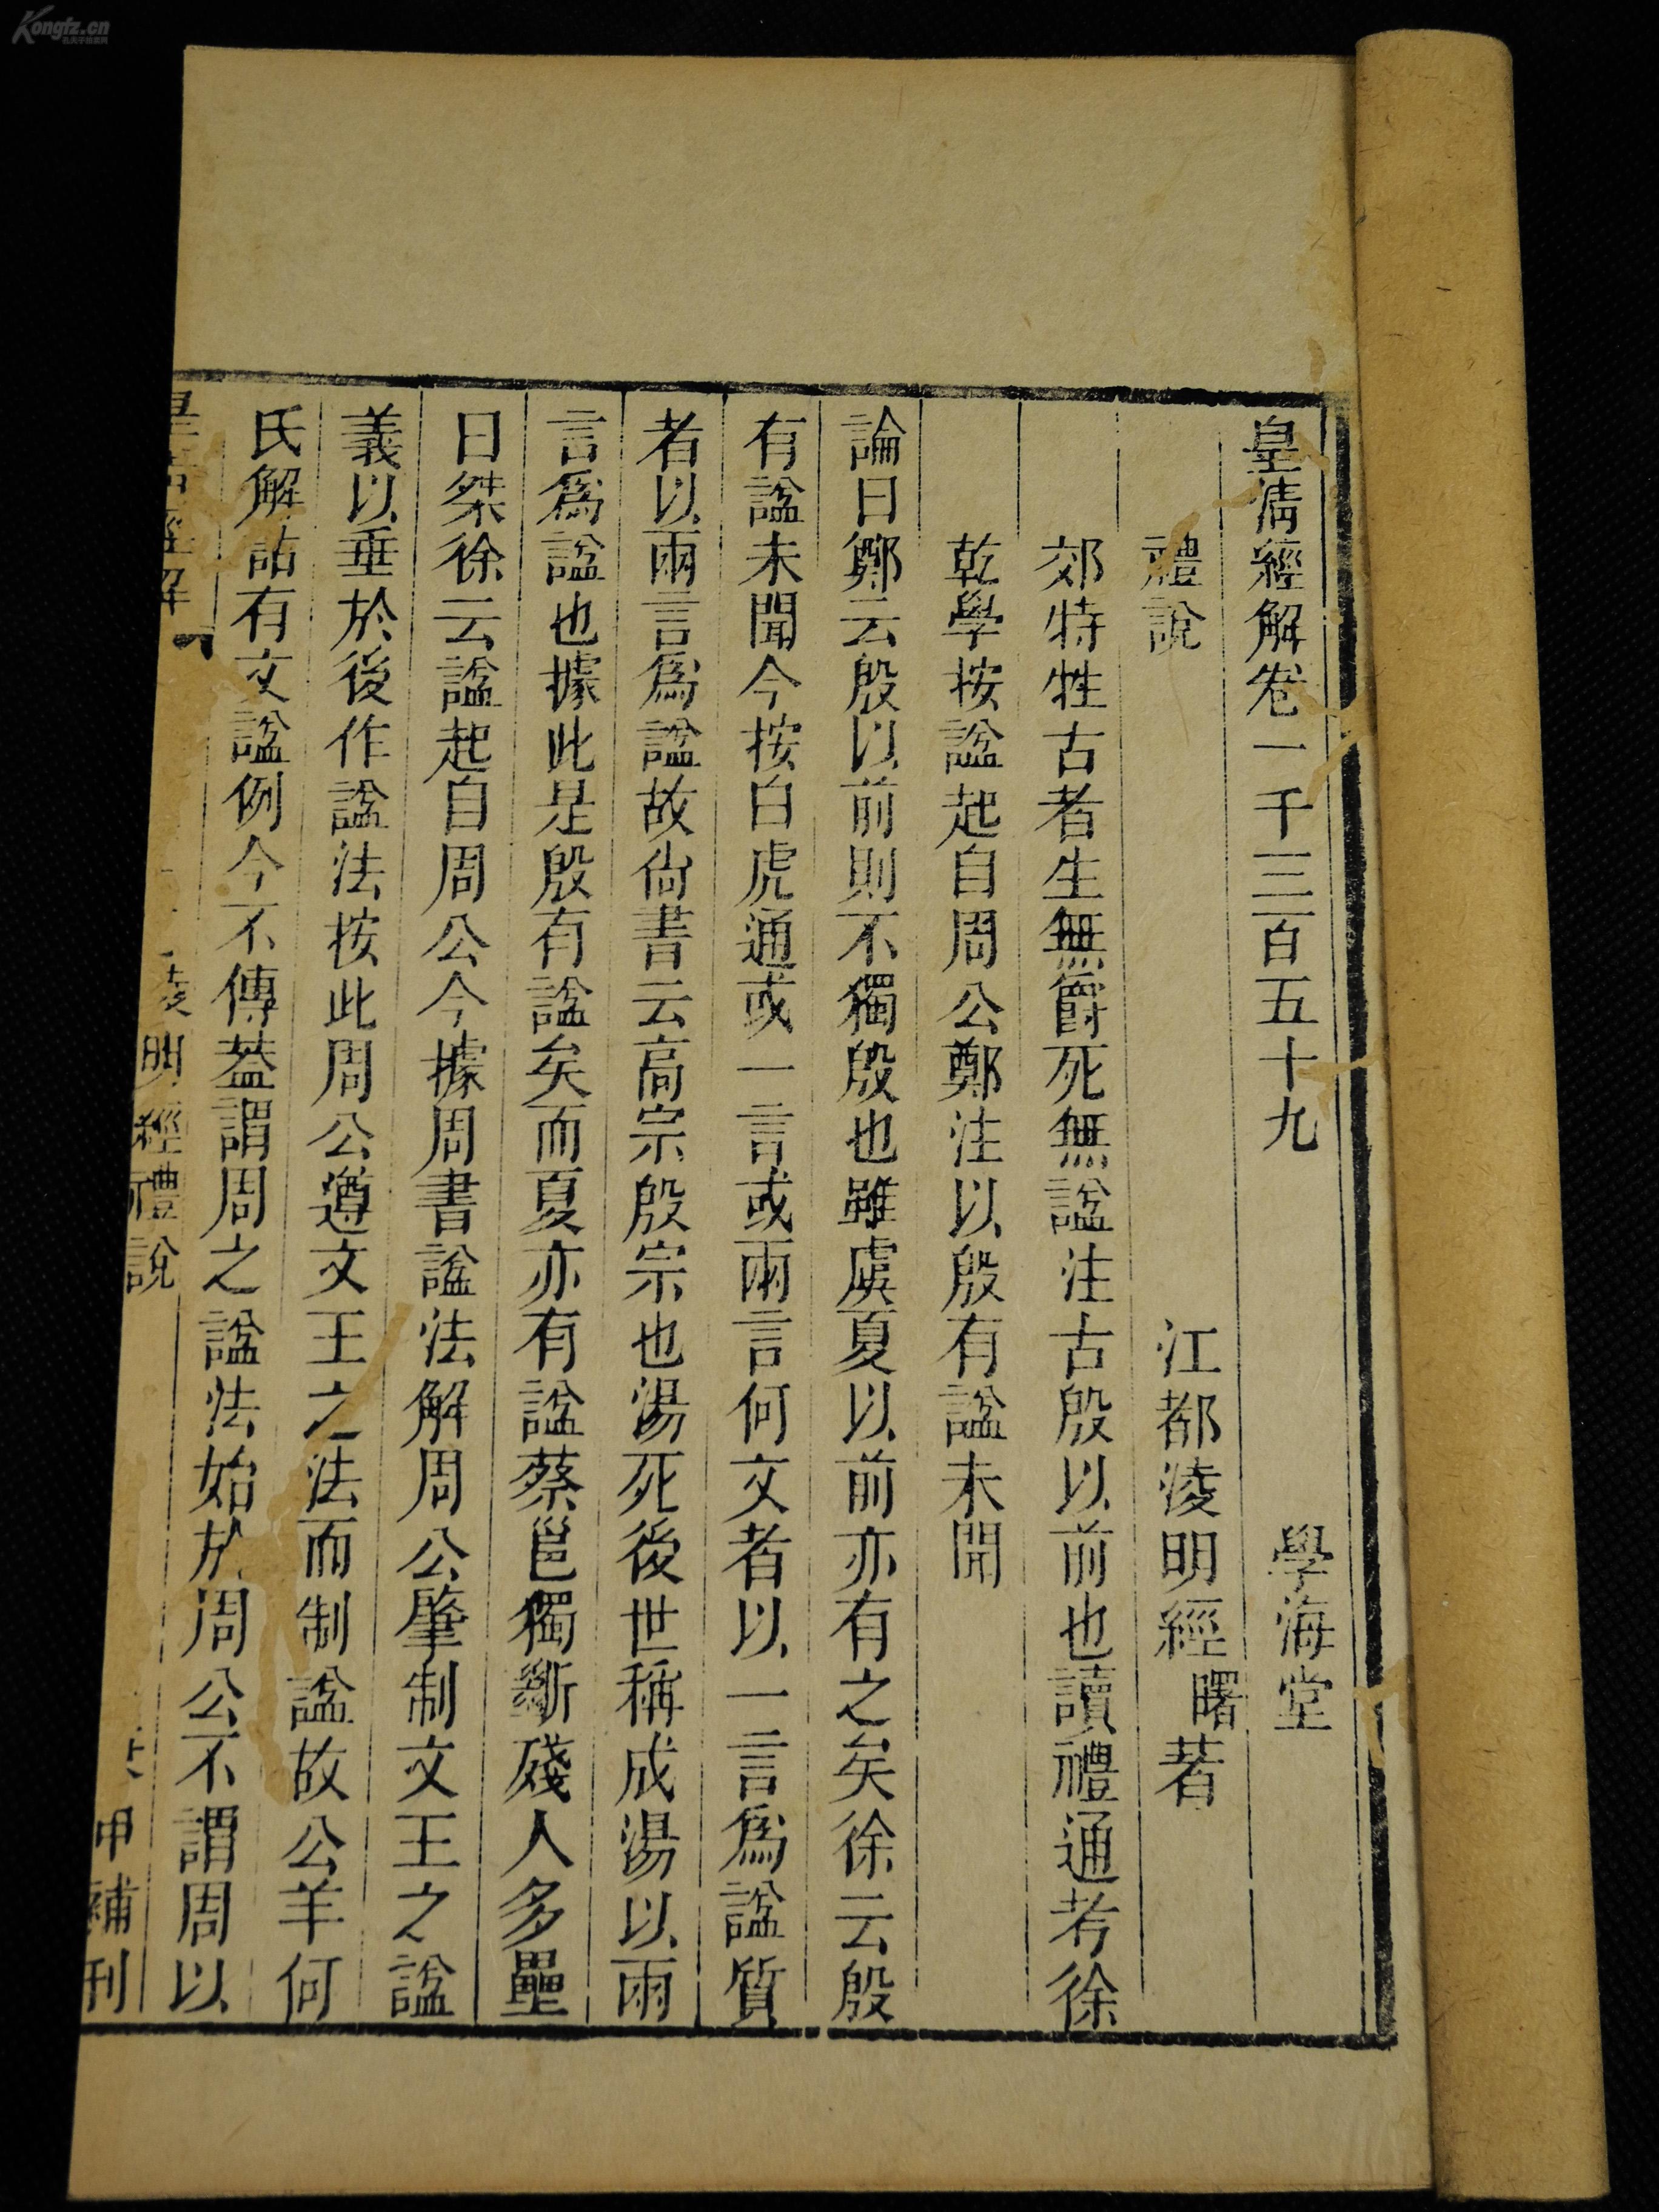 皇清經解卷一千三百五十九
學海堂
禮說
江都淩明經曙著
郊特牲古者生無爵死無諡注古殷以前也讀禮通考徐
乾學按諡起自周公鄭注以殷有諡未聞
論曰鄭云殷以前則不獨殷也雖虞夏以前亦有之矣徐云殷
有諡未聞今按白虎通或一言或兩言何文者以一言爲諡質
者以兩言爲諡故尙書云高宗殷宗也湯死後世稱成湯以兩
言爲諡也據此是殷有諡矣而夏亦有諡蔡邕獨斷殘人多壘
曰桀徐云諡起自周公今據周書諡法解周公肇制文王之諡
義以垂於後作諡法按此周公遵文王之法而制諡故公羊何
氏解詁有文諡例今不傳葢謂周之諡法始於周公不謂周以
淩明經禮說
申補刊
Kongfz.cn